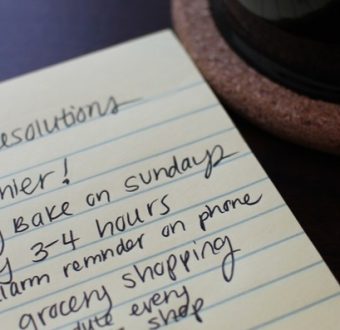 esolutions
hier!
Bake on sundays
y 3-4 hours
larm remnder on phone
grocery shopping
every
shop